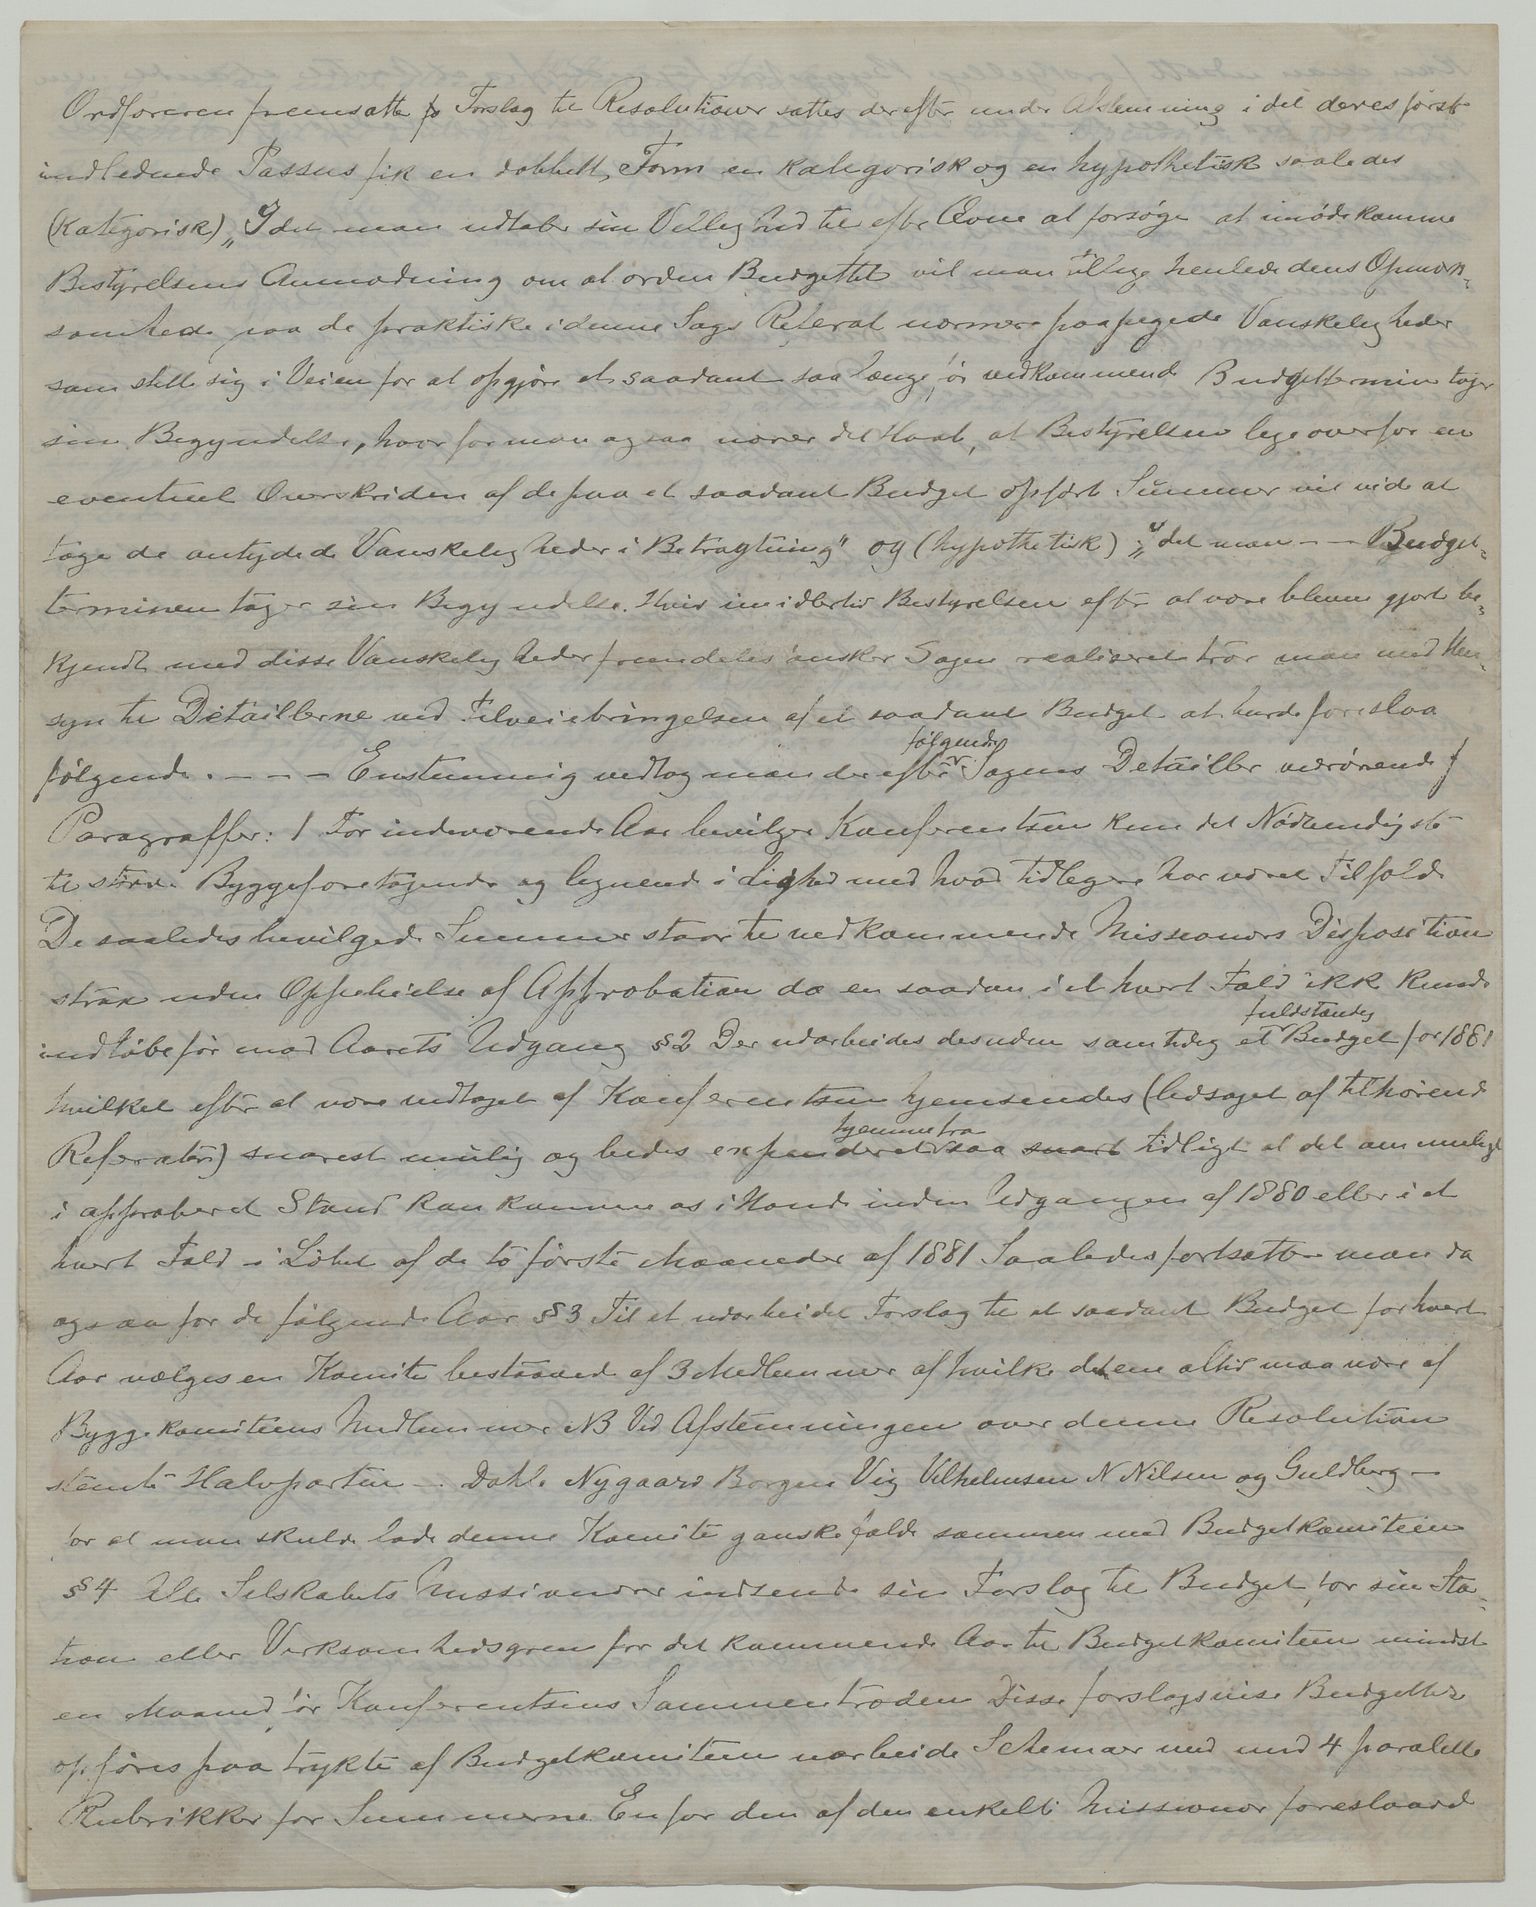 Ordføreren fremsatte Forslag til Resolutioner sattes derefter under Afstemning i det deres først
indledende Passus fik en dobbelt Form en kategorisk og en hypothetisk saaledes
(Kategorisk) „Idet man udtaler sin Villighed til efter Evne at forsøge at imødekomme
Bestyrelsens Anmodning om at orden Budgettet vil man tillige henlede dens Opmærk-
somhed paa de praktiske i denne Sags Referat nærmere paapegede Vanskeligheder
som stille sig i Veien for at opgjøre et saadant saa længe før vedkommende Budgettermin tager
sin Begyndelse, hvorfor man ogsaa nærer det Haab, at Bestyrelsen ligeoverfor en
eventuel Overskriden af de paa et saadant Budget opført Summer vil vide at
tage de antydede Vanskeligheder i Betragtning" og (hypothetisk) „Idet man - - Budget-
terminen tager sin Begyndelse. Hvis imidlertid Bestyrelsen efter at være bleven gjort be-
kjendt med disse Vanskeligheder fremdeles ønsker Sagen realiseret tror man med Hen-
syn til Detaillerne ved Tilveiebringelsen af et saadant Budget at burde foreslaa
følgende. - - - Enstemmig vedtog man derefter følgende Sagens Detailler vedrørende
Paragraffer: 1 For indeværende Aar bevilger Konferentsen kun det Nødvendigste
til større Byggeforetagende og lignende i Lighed med hvad tidligere har været Tilfælde
De saaledes bevilgede Summer staar til vedkommende Missionærs Disposition
strax uden Oppebielse af Approbation da en saadan i et hvert Fald ikke kunde
indløbe før mod Aarets Udgang §2 Der udarbeides desuden samtidig et fuldstændig Budget for 1881
hvilket efter at være vedtaget af Konferentsen hjemsendes (ledsaget af tilhørende
Referater) snarest mulig og bedes expenderet hjemmefra saa snart tidligt at det om muligt
i approberet Stand kan komme os i Hænde inden Udgangen af 1880 eller i et
hvert Fald i Løbet af de to første Maaneder af 1881 Saaledes fortsætter man da
ogsaa for de følgende Aar §3 Til at udarbeide Forslag til et saadant Budget for hvert
Aar vælges en Komite bestaaende af 3 Medlemmer af hvilke den ene altid maa være af
Byggekomiteens Medlemmer NB Ved Afstemningen over denne Resolution
stemte Halvparten - Dahle Nygaard Borgen Vig Vilhelmsen N Nilsen og Guldberg -
for at man skulde lade denne Komite ganske falde sammen med Budgetkomiteen
§4 Alle Selskabets Missionærer indsende sin Forslag til Budget for sin Sta-
tion eller Virksomhedsgren for det kommende Aar til Budgetkomiteen mindst
en Maaned før Konferentsens Sammentræden Disse forslagsvise Budgetter
opføres paa trykte af Budgetkomiteen udarbeide Schemaer med 4 paralelle
Rubrikker for Summerne. En for den af den enkelte Missionær foreslaaed